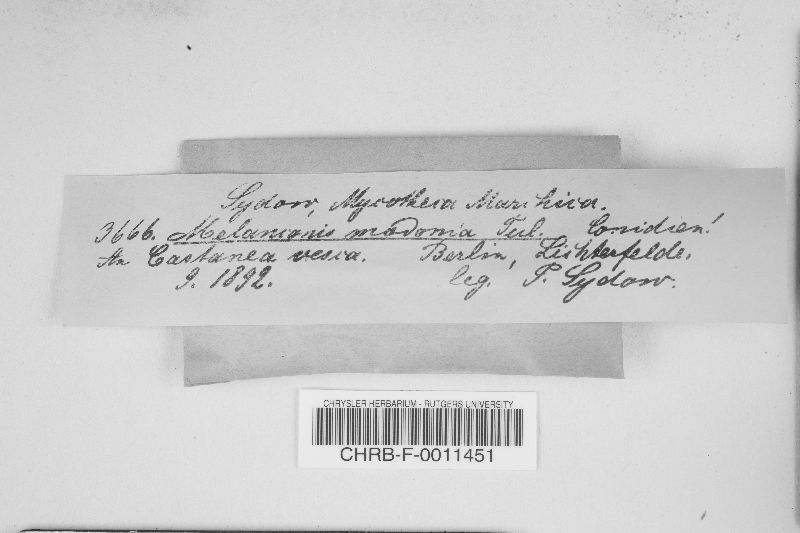 Sydow, Mycotheca Marchica.
3666. Melanconis modonia Tul. Conidien!
An Castanea vesca. Berlin, Lichterfelde.
9. 1892. leg. P. Sydow.
CHRYSLER HERBARIUM - RUTGERS UNIVERSITY
CHRB-F-0011451